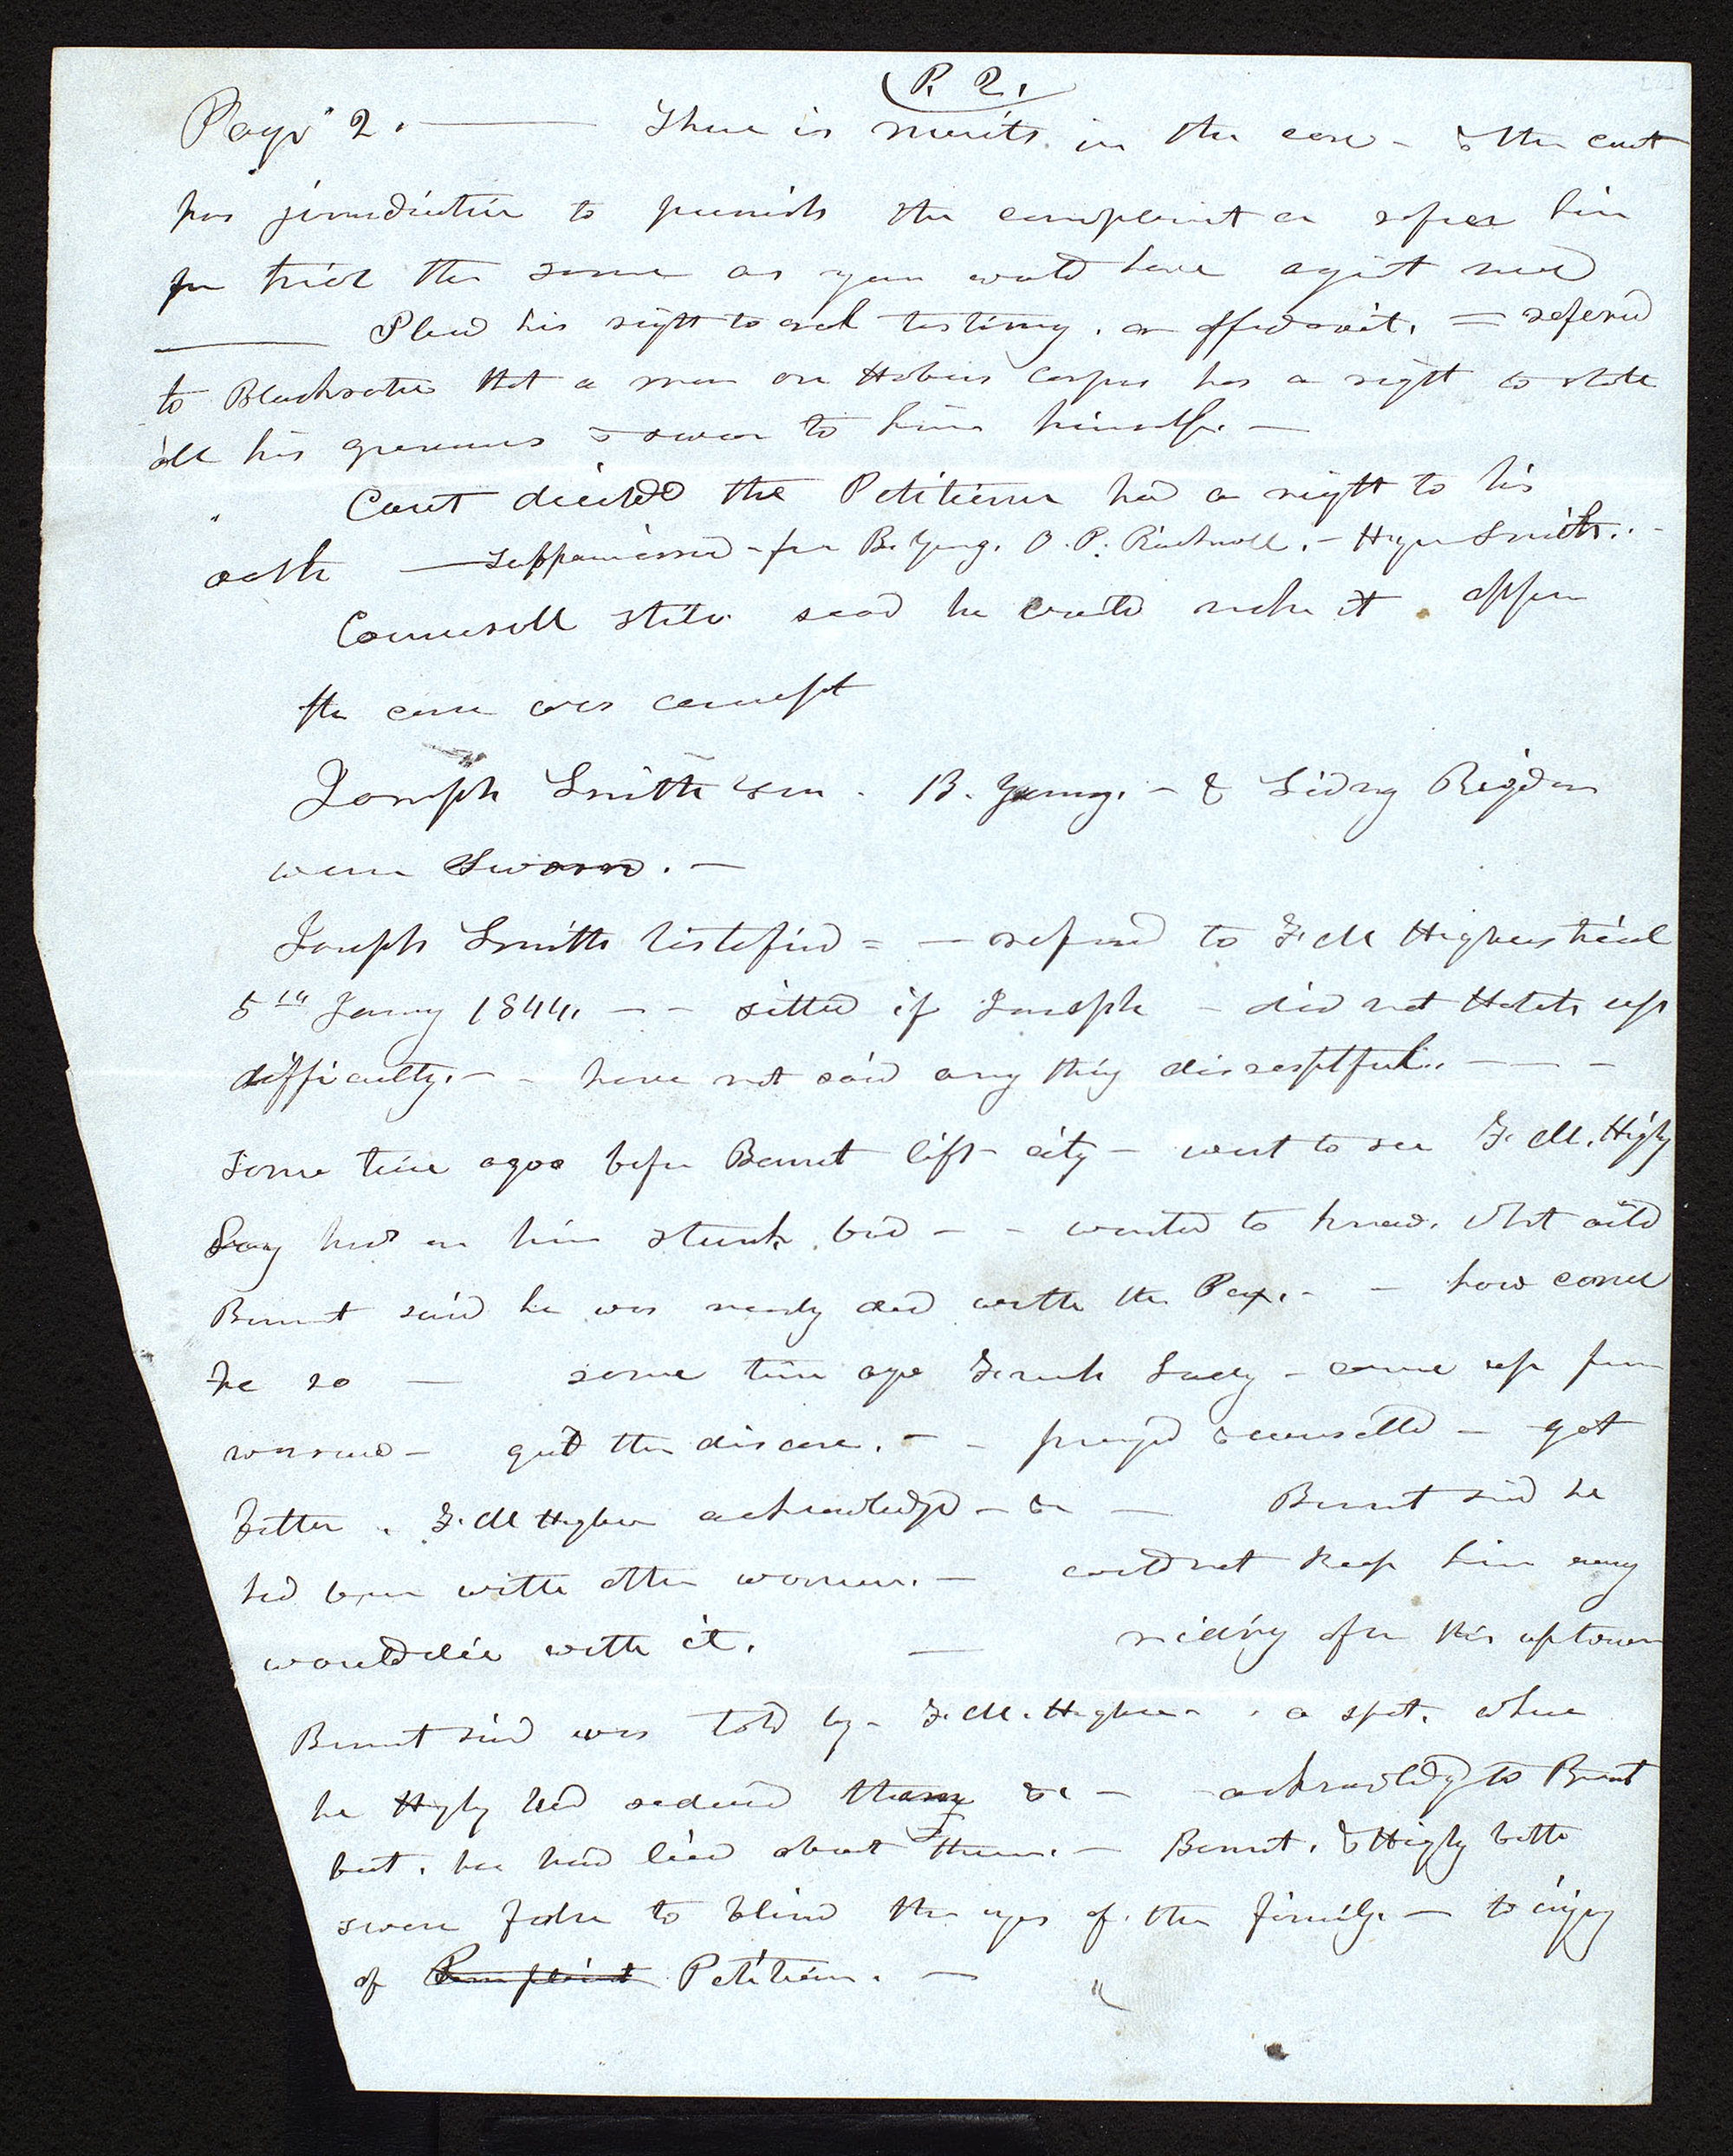 P. 2.
Page 2. — There is merits in the case - & the cout
has jurisdiction to punish the complaint or refer him
for trial the same as you would have agist me
— Plead his right to oral testimny. or affidavit. = referrd
to Blackstone that a man on Habeus corpus has a right to state
all his grevances & swear to him himself. —
Cout decided the Petitioner had a right to his
oath — for B. Young. O. P. Rockwell. - Hyrum Smith. -
Councell state said he would make it appear
the case was corrupt
Joseph Smith sen. B. Young. - & Sidny Rigdon
were Sworn. —
Joseph Smith testified = — referred to F. M Higbees trial
5th Janry 1844, - - sittled if Joseph - did not Hatch up
difficulty. - - have not said any thing disresptful. — — -
Some time agoo before Bennet left city - went to see F. M. Higby
Lay had on him stunk bad - - wanted to know. what aild
Bennet said he was nearly dead with the Pox. - - how come
he so — some time ago French Lady - came up from
warsaw - got the disease. - - prayed & councelld — got
better. F. M Higbee acknowledge - &c — Bennet said he
had been with other women. — could not keep him away
would die with it. — riding after this up town
Bennet said was told by F. M. Higbee - a spot. where
he Higby had seduced them &c — acknowledg to Bennet
but. he had lied about them. — Bennet. & Higby both
swore false to blind the eyes of the family. — to enjoy
of Complaint Petition. —